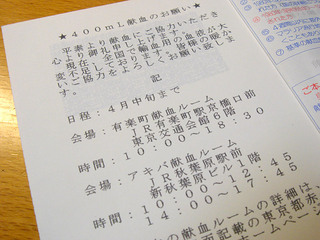 ★４００ｍＬ献血のお願い★
平素より献血にご協力いただき
心より御礼申し上げます。
現在、全国で輸血用の血液が大
変不足しています。皆様の暖か
いご協力をよろしくお願い致しま
記
日程：４月中旬まで
会場：有楽町献血ルーム
ＪＲ有楽町駅京橋口前
東京交通会館６階
時間：１０：００～１８：３０
会場：アキバ献血ルーム
ＪＲ秋葉原駅前
新秋葉原ビル１階
時間：１０：００～１２：４５
１４：００～１７：４５
の献血ルームの詳細は、
記載の東京都赤
ホームペー